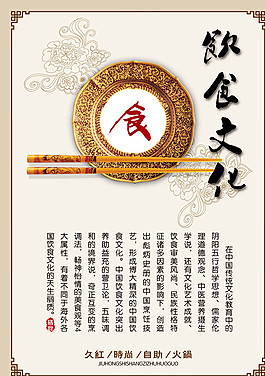 飲食文化
食
在中国传统文化教育中的
阴阳五行哲学思想、儒家伦
理道德观念、中医营养摄生
学说，还有文化艺术成就、
饮食审美风尚、民族性格特
征诸多因素的影响下，创造
出彪炳史册的中国烹饪技
艺，形成博大精深的中国饮
食文化。中国饮食文化突出
养助益充的营卫论、五味调
和的境界说、奇正互变的烹
调法、畅神怡情的美食观等4
大属性，有着不同于海外各
国饮食文化的天生丽质。
久紅/時尚/自助/火鍋
JIUHONGSHISHANGZIZHUHUOGUO